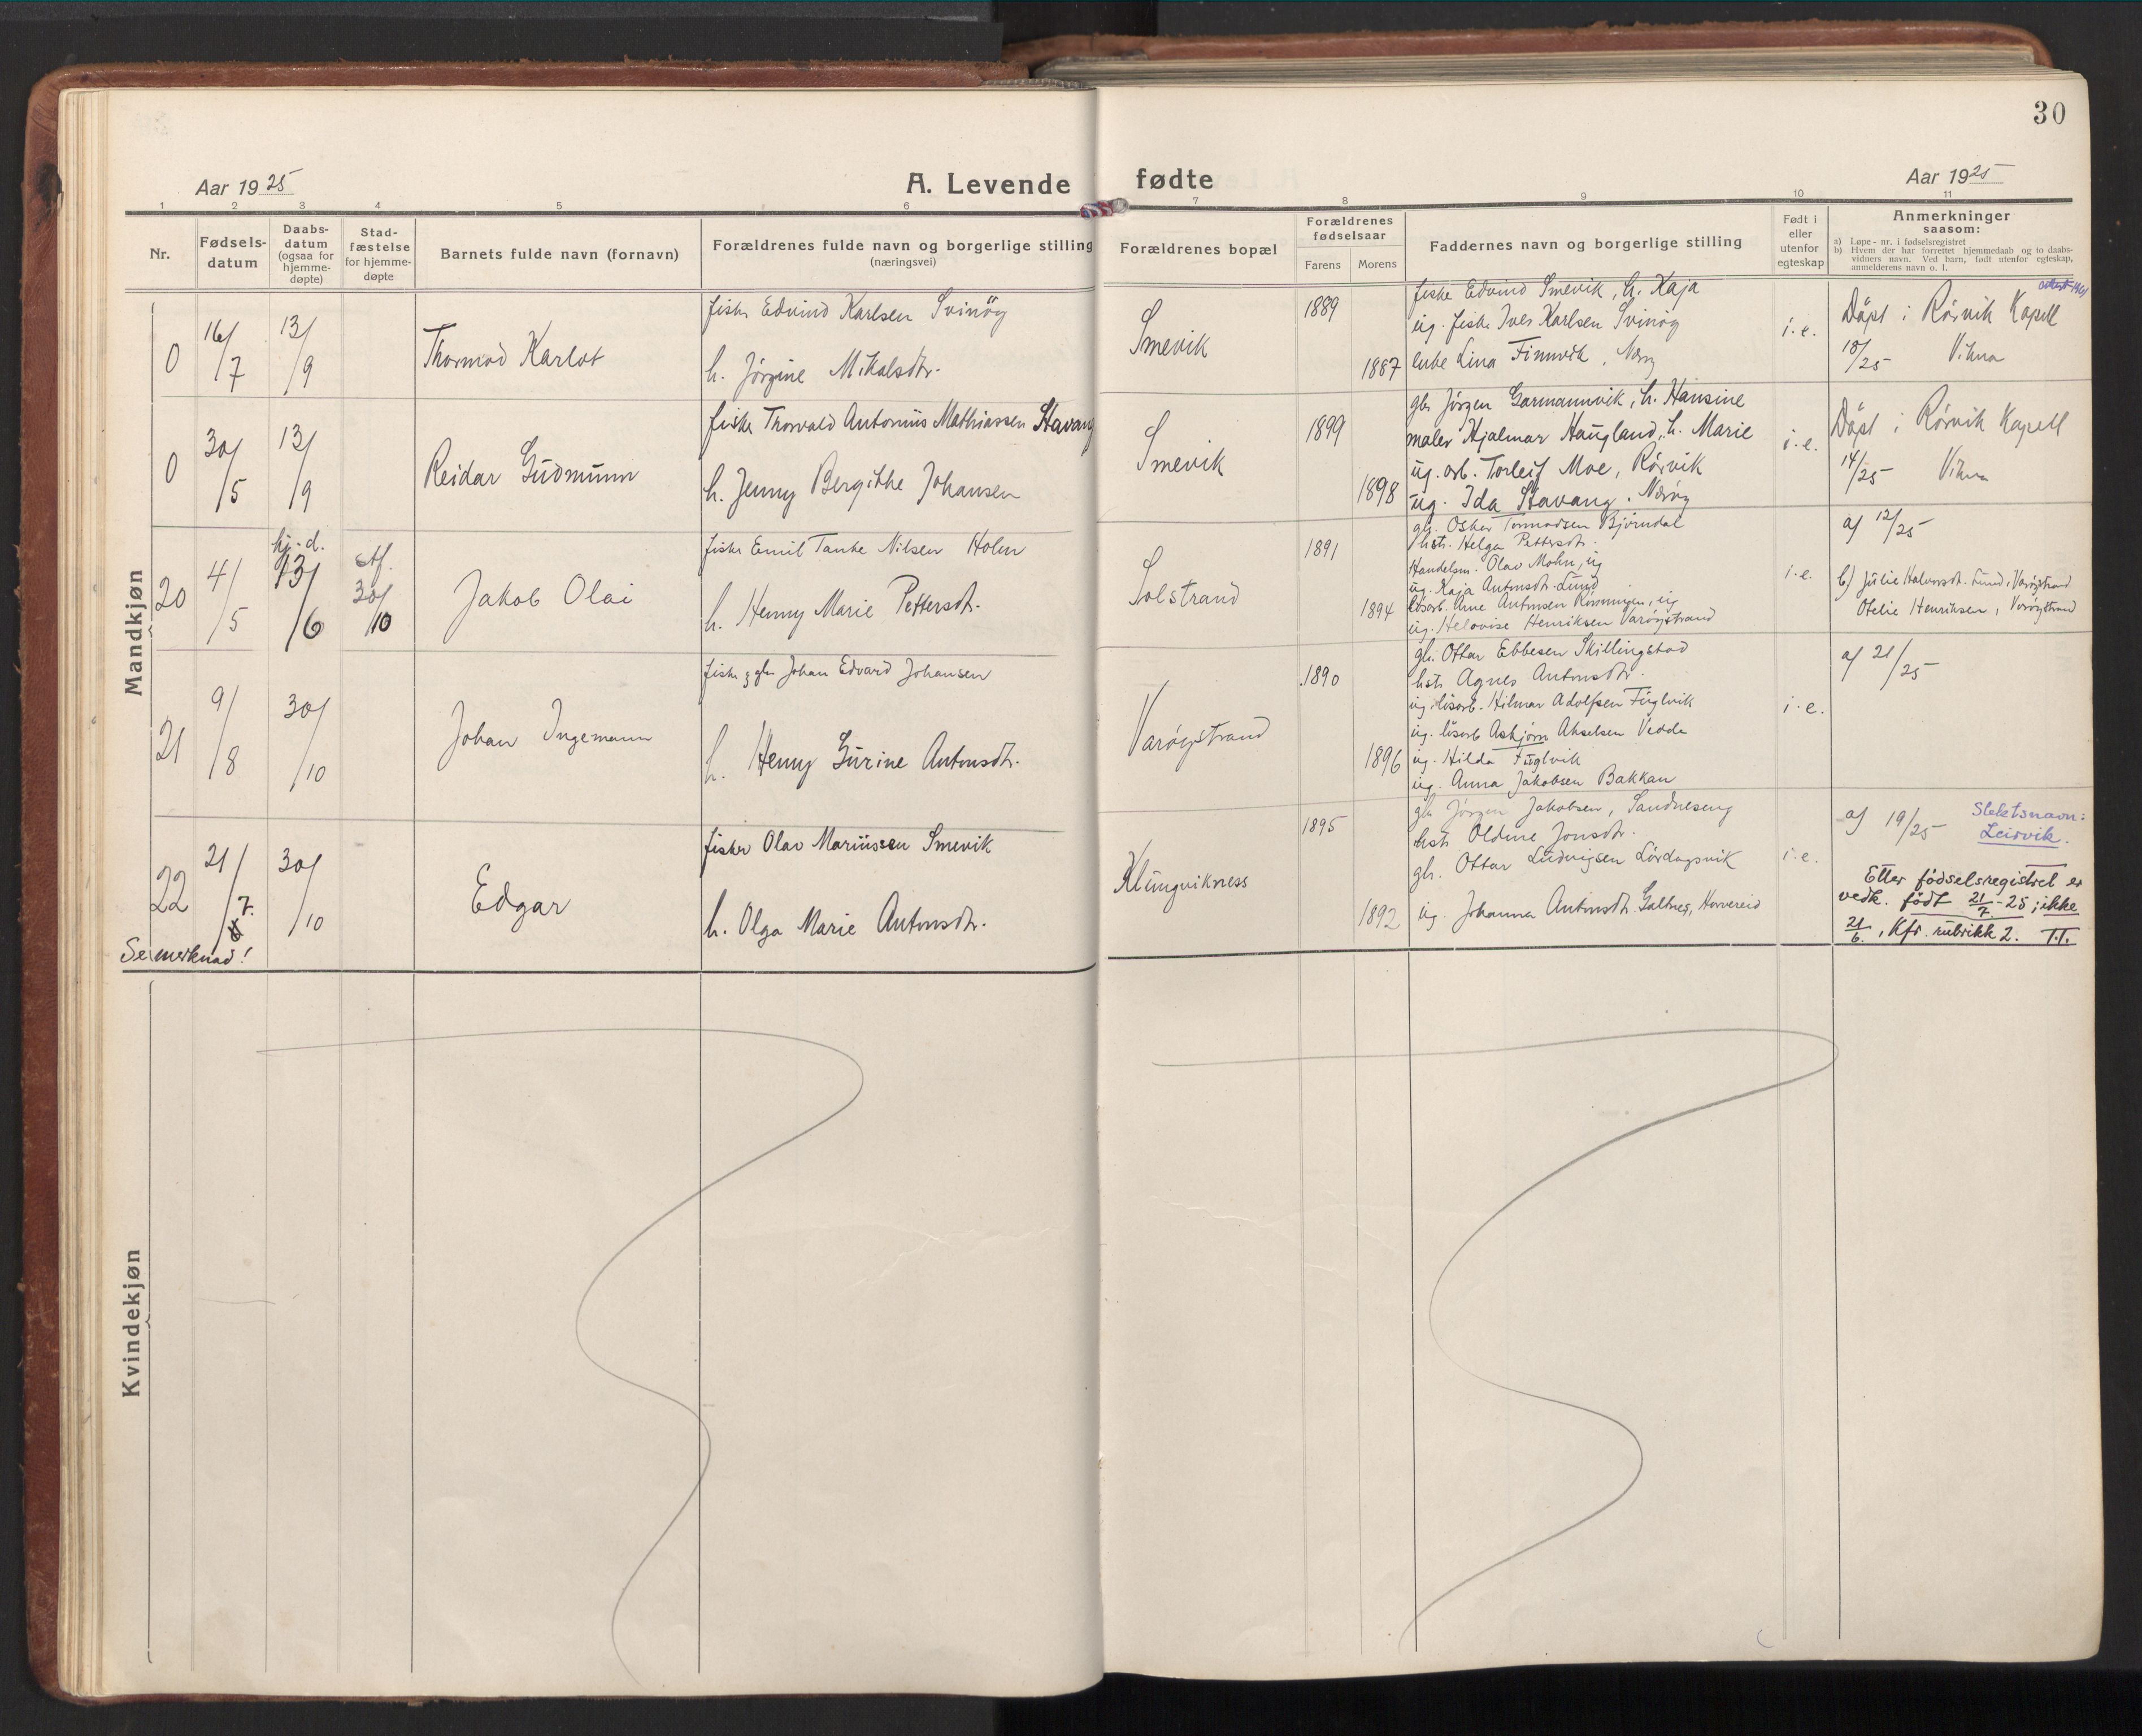 30
Aar 1925
A. Levende fødte
Aar 1925
1 2 3 4 5 6 7 8 9 10 11
Nr.
Fødsels-
datum
Daabs-
datum
(ogsaa for
hjemme-
døpte)
Stad-
fæstelse
for hjemme-
døpte
Barnets fulde navn (fornavn)
Forældrenes fulde navn og borgerlige stilling
(næringsvei)
Forældrenes bopæl
Forældrenes
fødselsaar
Farens Morens
Faddernes navn og borgerlige stilling
Født i
eller
utenfor
egteskap
Anmerkninger
saasom:
a) Løpe-nr. i fødselsregistret
b) Hvem der har forrettet hjemmedaab og to daabs-
vidners navn. Ved barn, født utenfor egteskap,
anmelderens navn o. l.
Mandkjøn
0
16/7
13/9
Thormod Karlot
fisker Edvind Karlsen Svinöy
h. Jörgine Mikalsdtr.
Smevik
1889
1887
fisker Edvind Smevik, h. Kaja
ug. fisker Iver Karlsen Svinöy
enke Lina Finnvik, Næröy
i.e.
Döpt i Rörvik Kapell
18/25 Vikna
0
30/5
13/9
Reidar Gudmunn
fisker Thorvald Antonius Mathiassen Stavang
h. Jenny Bergithe Johansen
Smevik
1899
1898
gbr Jörgen Garmannvik, h. Hansine
maler Hjalmar Haugland, h. Marie
ug. arb. Torleif Moe, Rörvik
ug. Ida Stavang. Næröy
i.e.
Döpt i Rörvik Kapell
14/25 Vikna
20
4/5
hj.d.
13/6
stf.
30/10
Jakob Olai
fisker Emil Tanke Nilsen Holm
h. Henny Marie Pettersdtr.
Solstrand
1891
1894
gbr. Oskar Tormodsen Björndal
hstr. Helga Pettersdtr.
Handelsm. Olav Mohn, ug
ug. Kaja Antonsdtr. Lund
lösarb. Arne Antonsen Rönningen, ug
ug. Helovise Henriksen Varöystrand
i.e.
a) 12/25
b) Julie Halvorsdtr. Lund, Varöystrand
Otelie Henriksen, Varöystrand
21
9/8
30/10
Johan Ingemann
fisker og gbr Johan Edvard Johansen
h. Henny Gurine Antonsdtr.
Varöystrand
1890
1896
gbr. Ottar Ebbesen Skillingstad
hstr Agnes Antonsdtr.
ug. lösarb. Hilmar Adolfsen Fuglvik
ug. lösarb Asbjörn Akselsen Vedde
ug. Hilda Fuglvik
ug. Anna Jakobsen Bakkan
i.e.
a) 21/25
22
21/7.
30/10
Edgar
fisker Olav Mariussen Smevik
h. Olga Marie Antonsdtr.
Klungvikness
1895
1892
gbr Jörgen Jakobsen, Sandneseng
hstr Oldine Jonsdtr.
gbr. Ottar Ludvigsen Lördagsvik
ug. Johanna Antonsdtr. Galtnes, Horvereid
i.e.
a) 19/25
Slektsnavn:
Leirvik.
Etter födselsregistret er
vedk. födt 21/7.-25; ikke
21/6., Kfr. rubrikk 2. T.T.
Se merknad!
Kvindekjøn